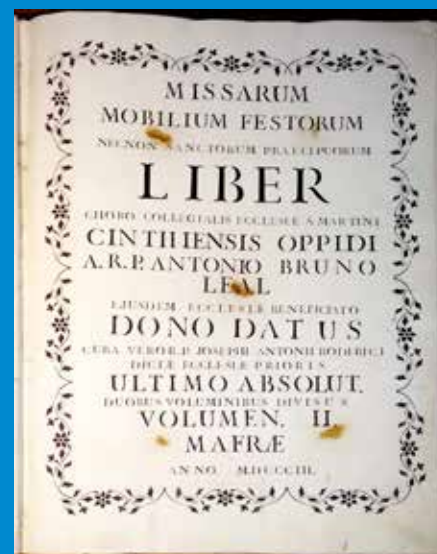 MISSARUM
MOBILIUM FESTORUM
NECNON SANCTORUM PRAECIPUORUM
LIBER
CHORO COLLEGIALIS ECCLESLÆ S. MARTINI
CINTHIENSIS OPPIDI
A. R. P. ANTONIO BRUNO
LEAL
EJUSDEM ECCLESLÆ BENEFICIATO
DONO DATUS
CURA VERO R. P. JOSEPHI ANTONII RODERICI
DICTÆ ECCLESLÆ PRIORIS
ULTIMO ABSOLUT.
DUOBUS VOLUMINIBUS DIVISUS
VOLUMEN. II.
MAFRÆ
ANNO. M.DCCCIII.